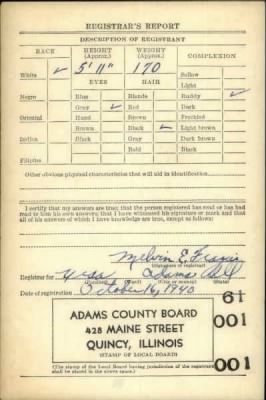 REGISTRAR'S REPORT
DESCRIPTION OF REGISTRANT
RACE HEIGHT (Approx.) WEIGHT (Approx.) COMPLEXION
White ✓ 5' 11" 170 Sallow
EYES HAIR Light
Negro Blue Blonde Ruddy ✓
Gray ✓ Red Dark
Oriental Hazel Brown Freckled
Brown Black ✓ Light brown
Indian Black Gray Dark brown
Bald Black
Filipino
Other obvious physical characteristics that will aid in identification
I certify that my answers are true; that the person registered has read or has had
read to him his own answers; that I have witnessed his signature or mark and that
all of his answers of which I have knowledge are true, except as follows:
Melvin E.
(Signature of registrar)
Registrar for Adams Ill
(City or county) (State)
Date of registration October 16, 1940
61
ADAMS COUNTY BOARD 001
428 MAINE STREET
QUINCY, ILLINOIS
(STAMP OF LOCAL BOARD) 001
(The stamp of the Local Board having jurisdiction of the registrant
shall be placed in the above space.)